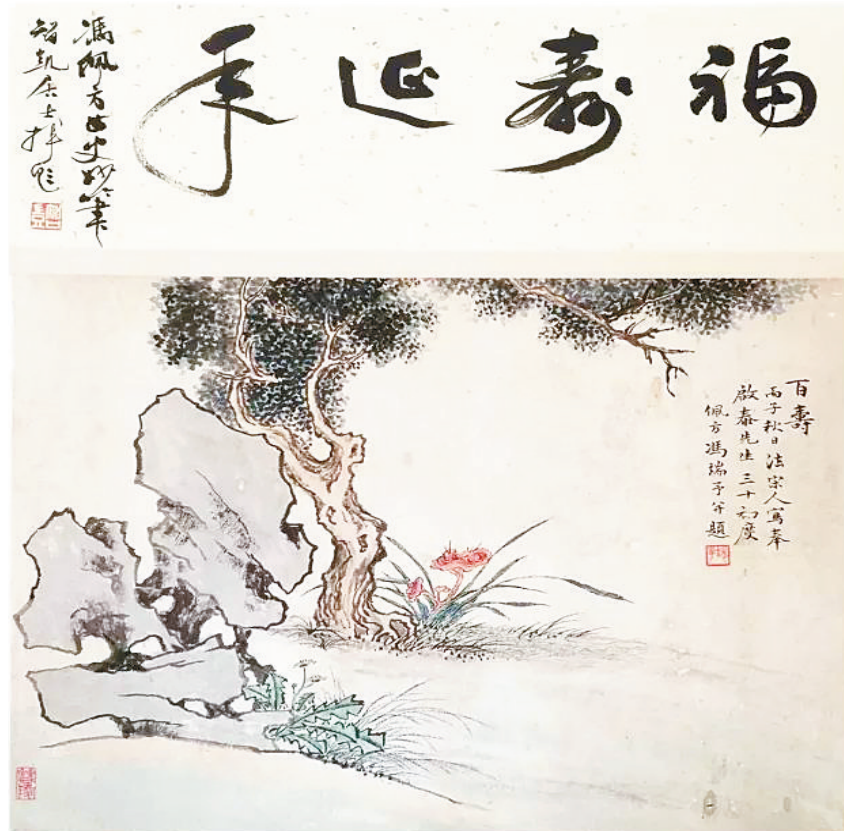 福壽延年
馮佩方女史妙筆
智凱居士拜題
百壽
丙子秋日法宋人寫奉
啟泰先生三十初度
佩方馮瑞予并題